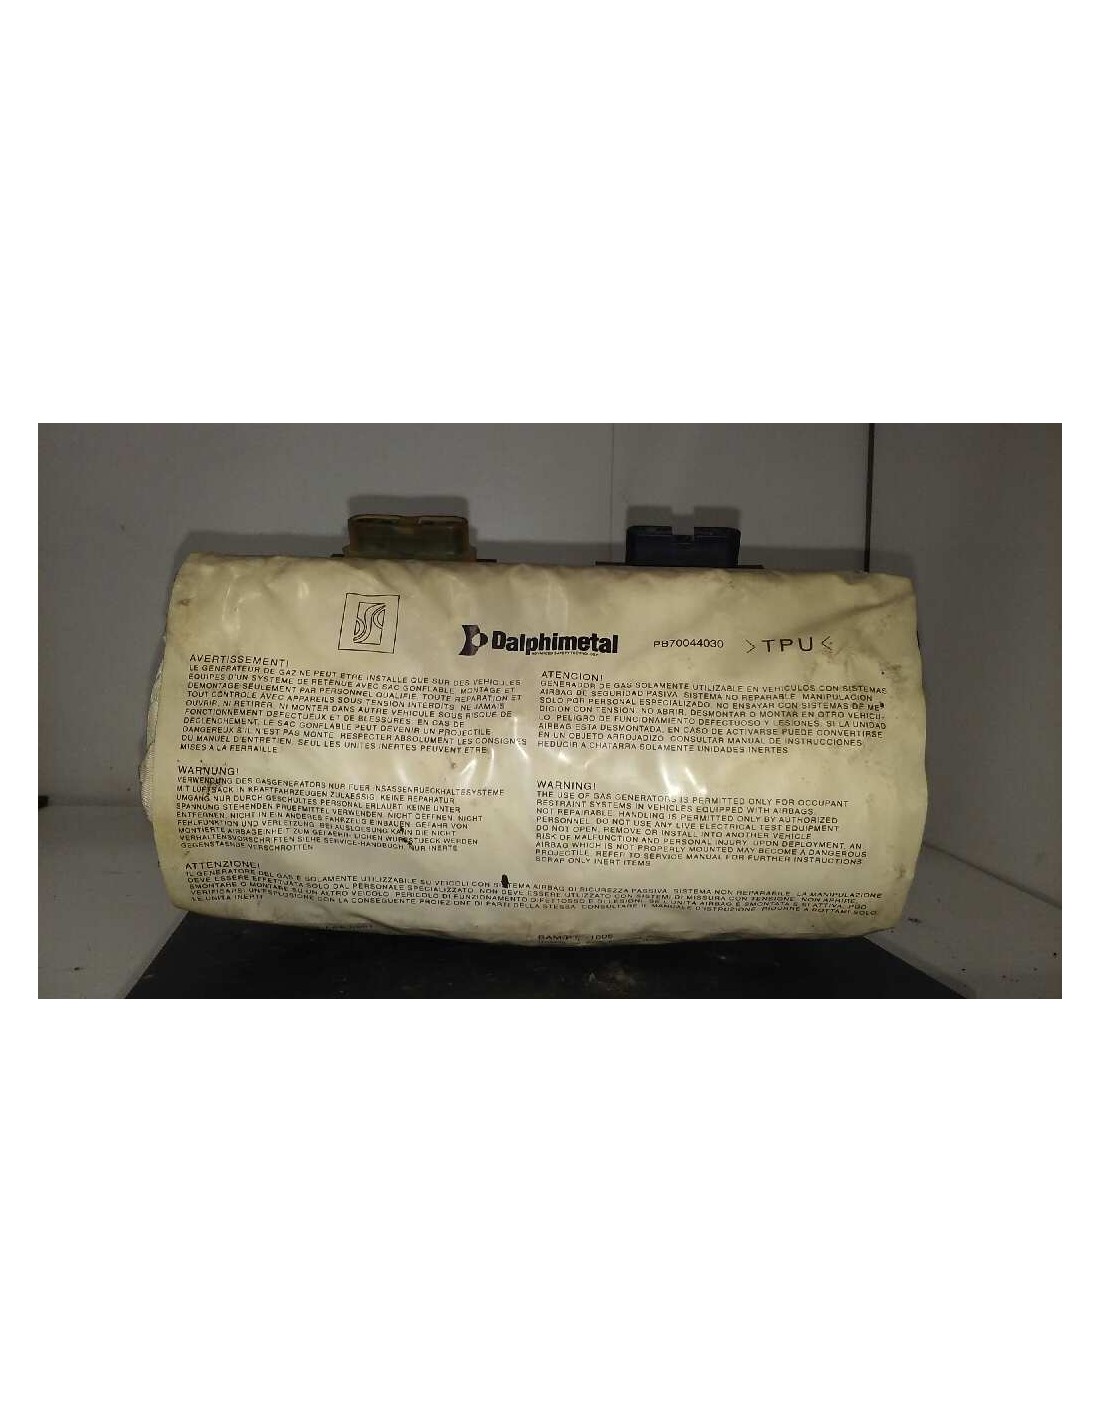 Dalphimetal
PB70044030
>TPU<
AVERTISSEMENT!
LE GENERATEUR DE GAZ NE PEUT ETRE INSTALLE QUE SUR DES VEHICULES
EQUIPES D'UN SYSTEME DE RETENUE AVEC SAC GONFLABLE. MONTAGE ET
DEMONTAGE SEULEMENT PAR PERSONNEL QUALIFIE. TOUTE REPARATION ET
TOUT CONTROLE AVEC APPAREILS SOUS TENSION INTERDITS. NE JAMAIS
OUVRIR, NI RETIRER, NI MONTER DANS AUTRE VEHICULE SOUS RISQUE DE
FONCTIONNEMENT DEFECTUEUX ET DE BLESSURES. EN CAS DE
DECLENCHEMENT, LE SAC GONFLABLE PEUT DEVENIR UN PROJECTILE
DANGEREUX S'IL N'EST PAS MONTE. RESPECTER ABSOLUMENT LES CONSIGNES
DU MANUEL D'ENTRETIEN. SEUL LES UNITES INERTES PEUVENT ETRE
MISES A LA FERRAILLE.
ATENCION!
GENERADOR DE GAS SOLAMENTE UTILIZABLE EN VEHICULOS CON SISTEMAS
AIRBAG DE SEGURIDAD PASIVA. SISTEMA NO REPARABLE. MANIPULACION
SOLO POR PERSONAL ESPECIALIZADO. NO ENSAYAR CON SISTEMAS DE ME-
DICION CON TENSION. NO ABRIR, DESMONTAR O MONTAR EN OTRO VEHICU-
LO. PELIGRO DE FUNCIONAMIENTO DEFECTUOSO Y LESIONES. SI LA UNIDAD
AIRBAG ESTA DESMONTADA, EN CASO DE ACTIVARSE PUEDE CONVERTIRSE
EN UN OBJETO ARROJADIZO. CONSULTAR MANUAL DE INSTRUCCIONES.
REDUCIR A CHATARRA SOLAMENTE UNIDADES INERTES.
WARNUNG!
VERWENDUNG DES GASGENERATORS NUR FUER INSASSENRUECKHALTESYSTEME
MIT LUFTSACK IN KRAFTFAHRZEUGEN ZULAESSIG. KEINE REPARATUR.
UMGANG NUR DURCH GESCHULTES PERSONAL ERLAUBT. KEINE UNTER
SPANNUNG STEHENDEN PRUEFMITTEL VERWENDEN. NICHT OEFFNEN, NICHT
ENTFERNEN, NICHT IN EIN ANDERES FAHRZEUG EINBAUEN. GEFAHR VON
FEHLFUNKTION UND VERLETZUNG. BEI AUSLOESUNG KANN DIE NICHT
MONTIERTE AIRBAGEINHEIT ZUM GEFAEHRLICHEN WURFSTUECK WERDEN.
VERHALTENSVORSCHRIFTEN SIEHE SERVICE-HANDBUCH. NUR INERTE
GEGENSTAENDE VERSCHROTTEN.
WARNING!
THE USE OF GAS GENERATORS IS PERMITTED ONLY FOR OCCUPANT
RESTRAINT SYSTEMS IN VEHICLES EQUIPPED WITH AIRBAGS.
NOT REPAIRABLE. HANDLING IS PERMITTED ONLY BY AUTHORIZED
PERSONNEL. DO NOT USE ANY LIVE ELECTRICAL TEST EQUIPMENT.
DO NOT OPEN, REMOVE OR INSTALL INTO ANOTHER VEHICLE.
RISK OF MALFUNCTION AND PERSONAL INJURY. UPON DEPLOYMENT, AN
AIRBAG WHICH IS NOT PROPERLY MOUNTED MAY BECOME A DANGEROUS
PROJECTILE. REFER TO SERVICE MANUAL FOR FURTHER INSTRUCTIONS.
SCRAP ONLY INERT ITEMS.
ATTENZIONE!
IL GENERATORE DEL GAS E SOLAMENTE UTILIZZABILE SU VEICOLI CON SISTEMA AIRBAG DI SICUREZZA PASSIVA. SISTEMA NON REPARABILE. LA MANIPULAZIONE
DEVE ESSERE EFFETTUATA SOLO DAL PERSONALE SPECIALIZZATO. NON DEVE ESSERE UTILIZZATO CON SISTEMI DI MISSURA CON TENSIONE. NON APRIRE,
SMONTARE O MONTARE SU UN ALTRO VEICOLO. PERICOLO DI FUNZIONAMENTO DIFETTOSO E DI LESIONI. SE L'UNITA AIRBAG E SMONTATA E SI ATTIVA, PUO
VERIFICARSI UN'ESPLOSIONE CON LA CONSEGUENTE PROIEZIONE DI PARTI DELLA STESSA. CONSULTARE IL MANUALE D'ISTRUZIONE. RIDURRE A ROTTAMI SOLO
LE UNITA INERTI.